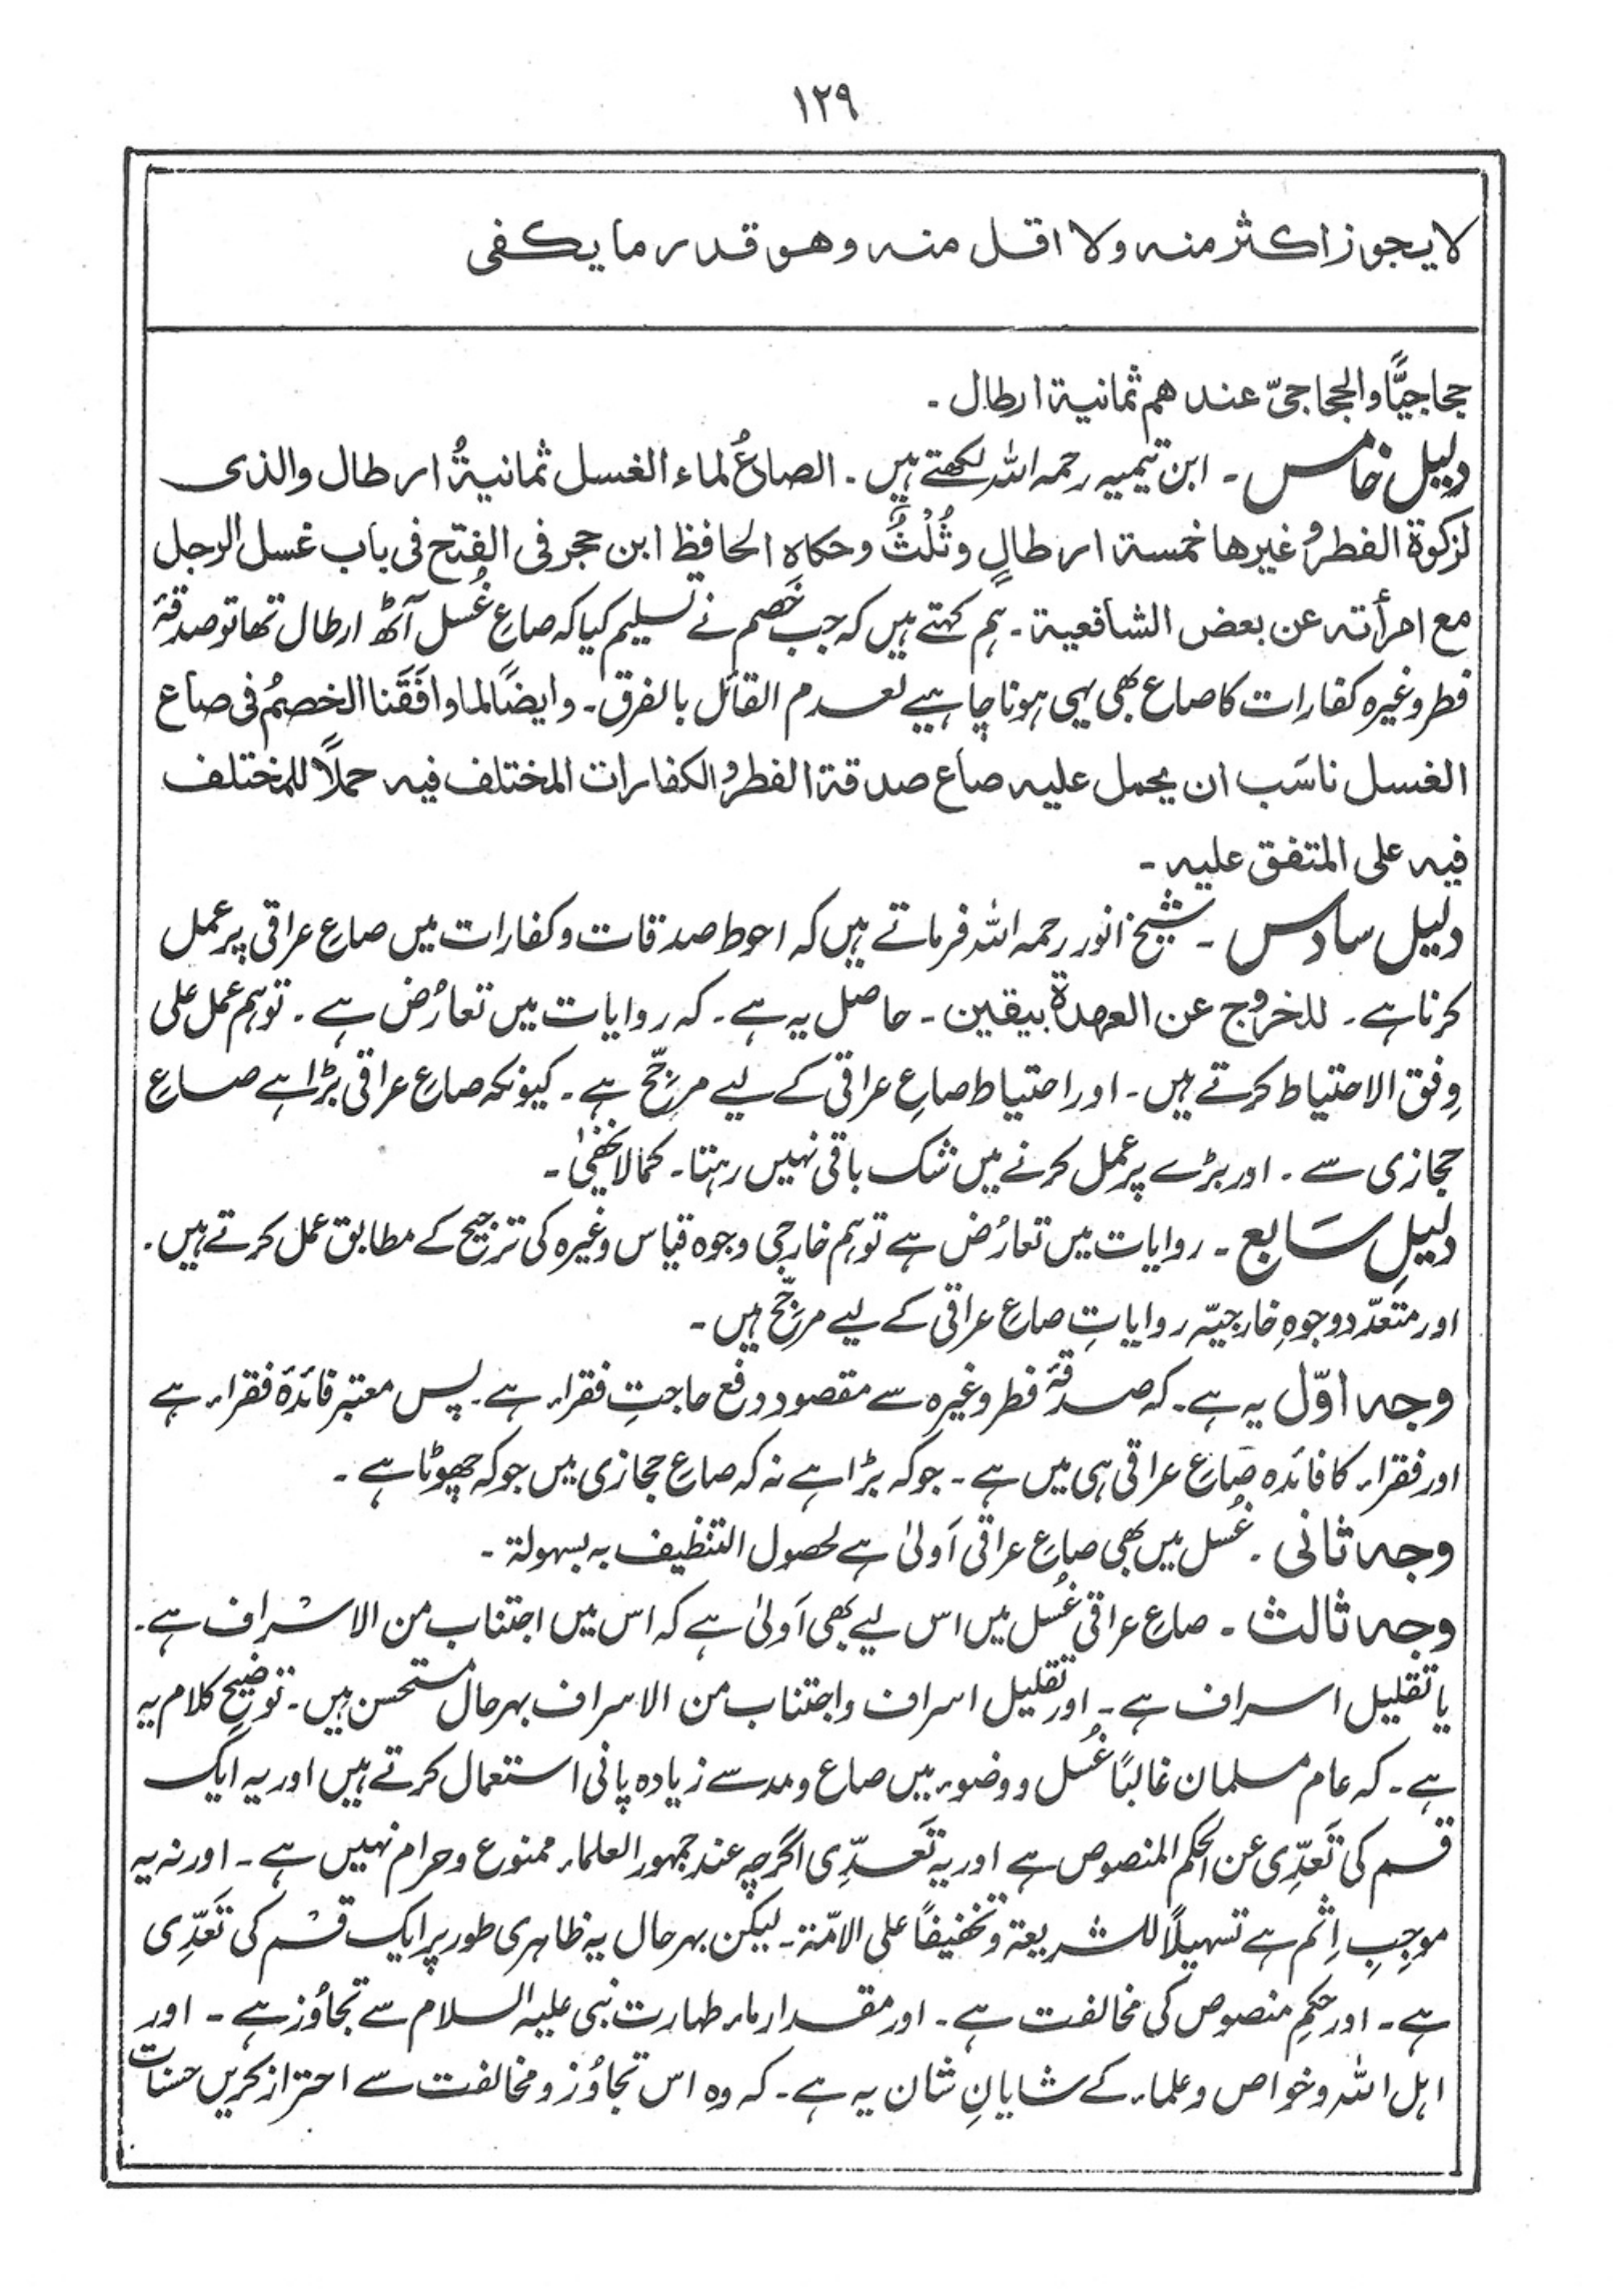 ۱۲۹
لا یجوز اکثر منہ ولا اقل منہ وھو قدر ما یکفی
حجاجیًّا والحجاجیّ عندھم ثمانیۃ ارطال ۔
دلیل خامس ۔ ابن تیمیہ رحمہ اللہ لکھتے ہیں ۔ الصاعُ لماء الغسل ثمانیۃُ ارطال والذی
لزکوٰۃ الفطر وغیرھا خمسۃ ارطالٍ وثُلْثٌ وحکاہ الحافظ ابن حجر فی الفتح فی باب غسل الرجل
مع امرأتہ عن بعض الشافعیۃ ۔ ہم کہتے ہیں کہ جب خَصم نے تسلیم کیا کہ صاعِ غُسل آٹھ ارطال تھا تو صدقۂ
فطر وغیرہ کفارات کا صاع بھی یہی ہونا چاہیے لعدم القائل بالفرق ۔ وایضًا لما وافَقَنا الخصمُ فی صاع
الغسل ناسَب ان یحمل علیہ صاع صدقۃ الفطر والکفارات المختلف فیہ حملًا للمختلف
فیہ علی المتفق علیہ ۔
دلیل سادس ۔ شیخ انور رحمہ اللہ فرماتے ہیں کہ احوط صدقات وکفارات میں صاعِ عراقی پر عمل
کرنا ہے ۔ للخروج عن العھدۃ بیقین ۔ حاصل یہ ہے ۔ کہ روایات میں تعارُض ہے ۔ تو ہم عمل علی
وِفق الاحتیاط کرتے ہیں ۔ اور احتیاط صاعِ عراقی کے لیے مرجِّح ہے ۔ کیونکہ صاعِ عراقی بڑا ہے صاعِ
حجازی سے ۔ اور بڑے پر عمل کرنے میں شک باقی نہیں رہتا ۔ کما لا یخفیٰ ۔
دلیلِ سَابع ۔ روایات میں تعارُض ہے تو ہم خارجی وجوہ قیاس وغیرہ کی ترجیح کے مطابق عمل کرتے ہیں ۔
اور متعدّد وجوہِ خارجیّہ روایاتِ صاعِ عراقی کے لیے مرجِّح ہیں ۔
وجہ اوّل یہ ہے ۔ کہ صدقۂ فطر وغیرہ سے مقصود دفع حاجتِ فقراء ہے ۔ پس معتبر فائدۂ فقراء ہے
اور فقراء کا فائدہ صاعِ عراقی ہی میں ہے ۔ جو کہ بڑا ہے نہ کہ صاعِ حجازی میں جو کہ چھوٹا ہے ۔
وجہ ثانی ۔ غُسل میں بھی صاعِ عراقی اَولیٰ ہے لحصول التنظیف بہ بسہولۃ ۔
وجہ ثالث ۔ صاعِ عراقی غُسل میں اس لیے بھی اَولیٰ ہے کہ اس میں اجتناب من الاسراف ہے ۔
یا تقلیل اسراف ہے ۔ اور تقلیل اسراف واجتناب من الاسراف بہرحال مستحسن ہیں ۔ توضیحِ کلام یہ
ہے ۔ کہ عام مسلمان غالبًا غُسل ووضوء میں صاع ومد سے زیادہ پانی استعمال کرتے ہیں اور یہ ایک
قسم کی تَعَدِّی عن الحکم المنصوص ہے اور یہ تَعَدِّی اگرچہ عند جمہور العلماء ممنوع وحرام نہیں ہے ۔ اور نہ یہ
موجِبِ اِثم ہے تسہیلًا للشریعۃ وتخفیفًا علی الامّۃ ۔ لیکن بہرحال یہ ظاہری طور پر ایک قسم کی تَعَدِّی
ہے ۔ اور حکمِ منصوص کی مخالفت ہے ۔ اور مقدار ماء طہارت نبی علیہ السلام سے تجاوُز ہے ۔ اور
اہل اللہ وخواص وعلماء کے شایانِ شان یہ ہے ۔ کہ وہ اس تجاوُز ومخالفت سے احتراز کریں حسنات